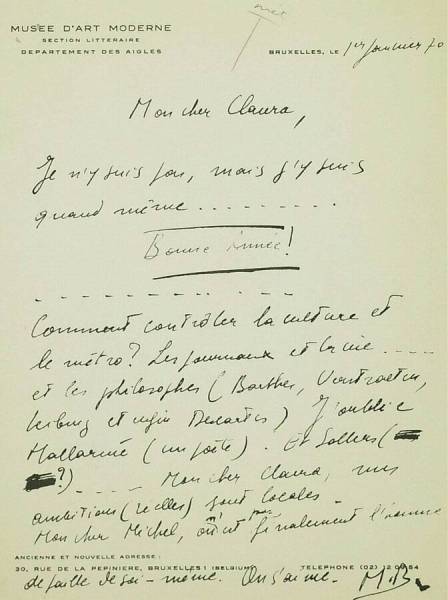 MUSEE D'ART MODERNE
SECTION LITTERAIRE
DEPARTEMENT DES AIGLES
BRUXELLES, LE 1er Janvier 70
Mon cher Claura,
Je n'y suis pas, mais j'y suis
quand même..........
Bonne Année!
Comment contrôler la culture et
le métro? Les journaux et la vie....
et les philosophes (Barthes,
et enfin Descartes) J'oublie
Mallarmé (un poète). Et Sollers(
?) ---- Mon cher Claura, nos
ambitions (réelles) sont locales-
Mon cher Michel, finalement l'homme
ANCIENNE ET NOUVELLE ADRESSE:
30, RUE DE LA PEPINIERE, BRUXELLES 1 (BELGIUM) TELEPHONE (02) 12.09.54
de soi-même. On s'aime. M.B.